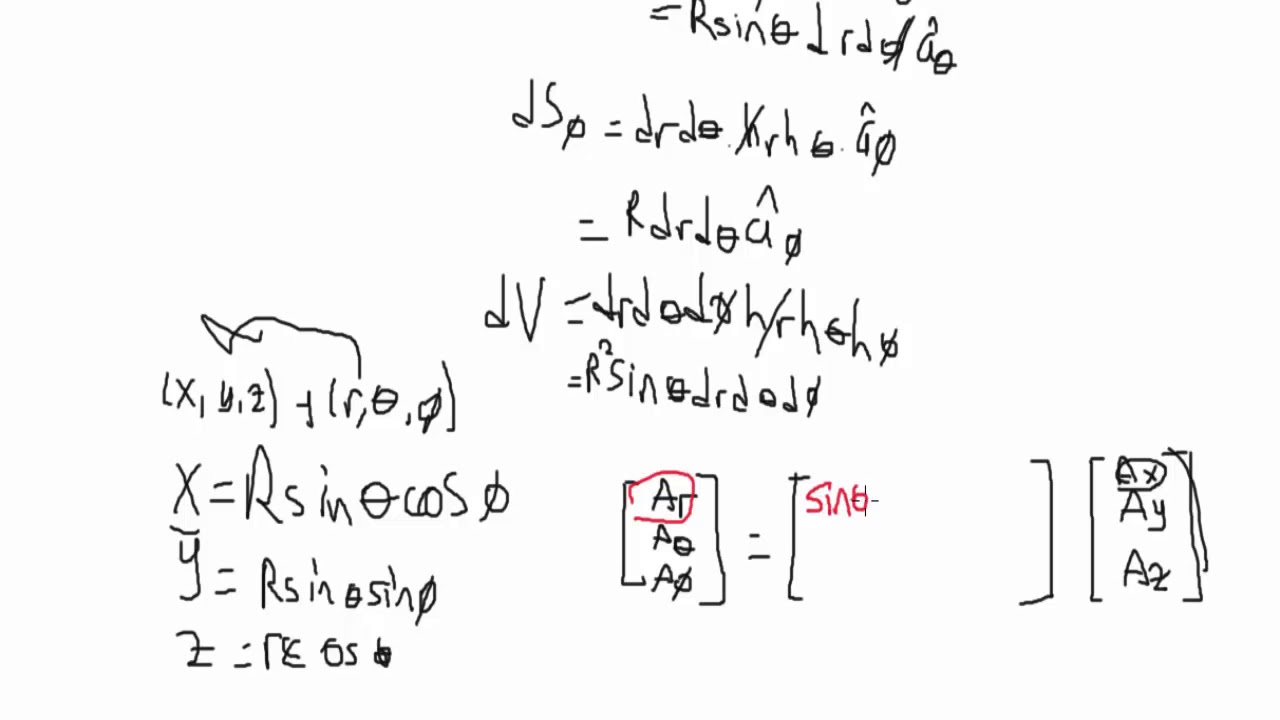 = Rsinθ drdϕ âθ
dSϕ = drdθ. hrhθ. âϕ
= Rdrdθ âϕ
dV = drdθdϕ hrhθhϕ
= R²sinθdrdθdϕ
(x, y, z) → (r, θ, ϕ)
x = Rsinθcosϕ
y = Rsinθsinϕ
z = r cosθ
[Ar = [sinθ ] [Ax
Aθ Ay
Aϕ] Az]